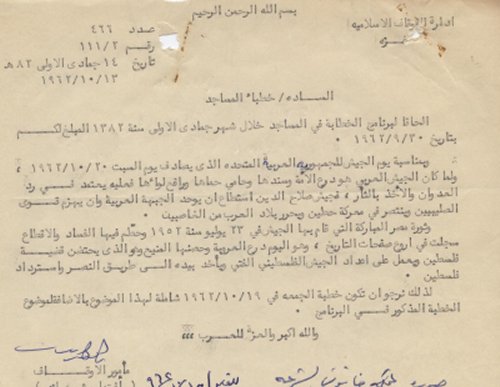 بسم الله الرحمن الرحيم
ادارة الاوقاف الاسلاميه
غزه
عدد ٤٦٦
رقم ١١١/٢
تاريخ ١٤ جمادى الاولى ٨٢هـ
١٩٦٢/١٠/١٣
الساده/ خطباء المساجد
الحاقا لبرنامج الخطابة في المساجد خلال شهر جمادى الاولى سنة ١٣٨٢ المبلغ لكم
بتاريخ ١٩٦٢/٩/٣٠ ٠
وبمناسبة يوم الجيش للجمهورية العربية المتحده الذى يصادف يوم السبت ١٩٦٢/١٠/٢٠
ولما كان الجيش العربي هو درع الأمة وسندها وحامي حماها ورافع لواءها فعليه يعتمد في رد
العدوان والاخذ بالثأر، فجيش صلاح الدين استطاع ان يوحد الجبهة العربية وان يهزم قوى
الصليبيين وينتصر في معركة حطين ويحرر بلاد العرب من الغاصبين ٠
وثورة مصر المباركة التي قام بها الجيش في ٢٣ يوليو سنة ١٩٥٢ وحطم فيها الفساد والاقطاع
سجلت في اروع صفحات التاريخ، وهو اليوم درع العروبة وحصنها المنيع وهو الذى يحتضن قضية
فلسطين ويعمل على اعداد الجيش الفلسطيني الفتي ويأخذ بيده الى طريق النصر واسترداد
فلسطين ٠
لذلك نرجو ان تكون خطبة الجمعه في ١٩٦٢/١٠/١٩ شاملة لهذا الموضوع بالاضافة لموضوع
الخطبة المذكور في البرنامج ٠
والله اكبر والعزة للعرب ،،،
مأمور الاوقاف